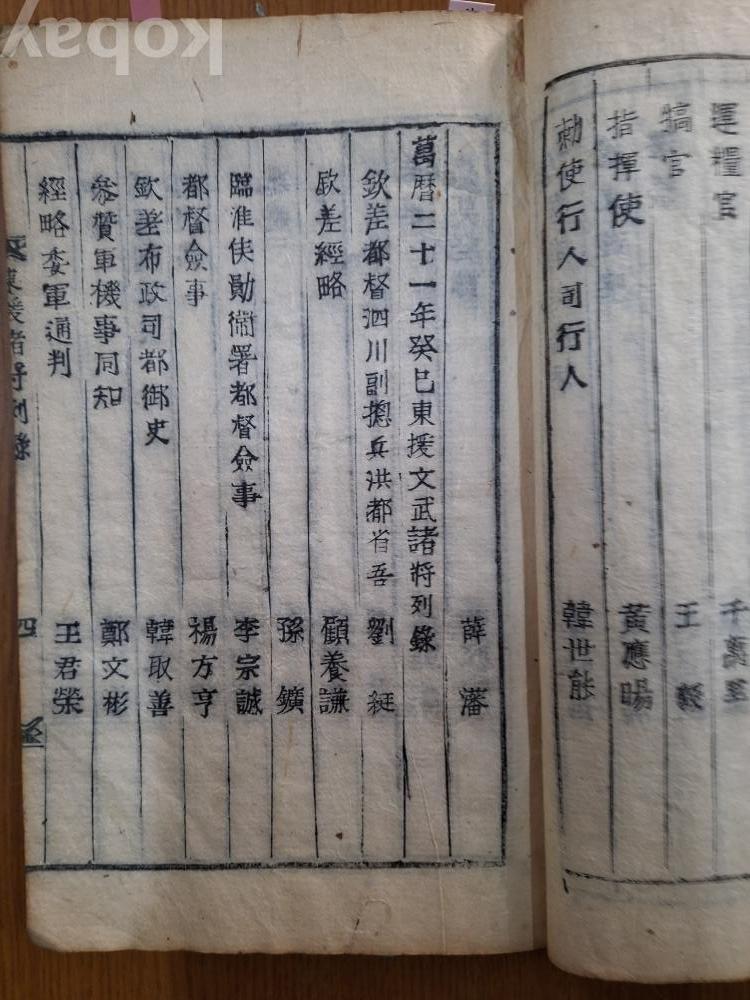 運糧官 千萬里
犒官 王毅
指揮使 黃應暘
勅使行人司行人 韓世能
薛藩
萬曆二十一年癸巳東援文武諸將列錄
欽差都督泗川副摠兵洪都省吾 劉綎
欽差經略 顧養謙
孫鑛
臨淮侯勛衛署都督僉事 李宗誠
都督僉事 楊方亨
欽差布政司都御史 韓取善
參贊軍機事同知 鄭文彬
經略委軍通判 王君榮
東援諸將列錄 四
kobay